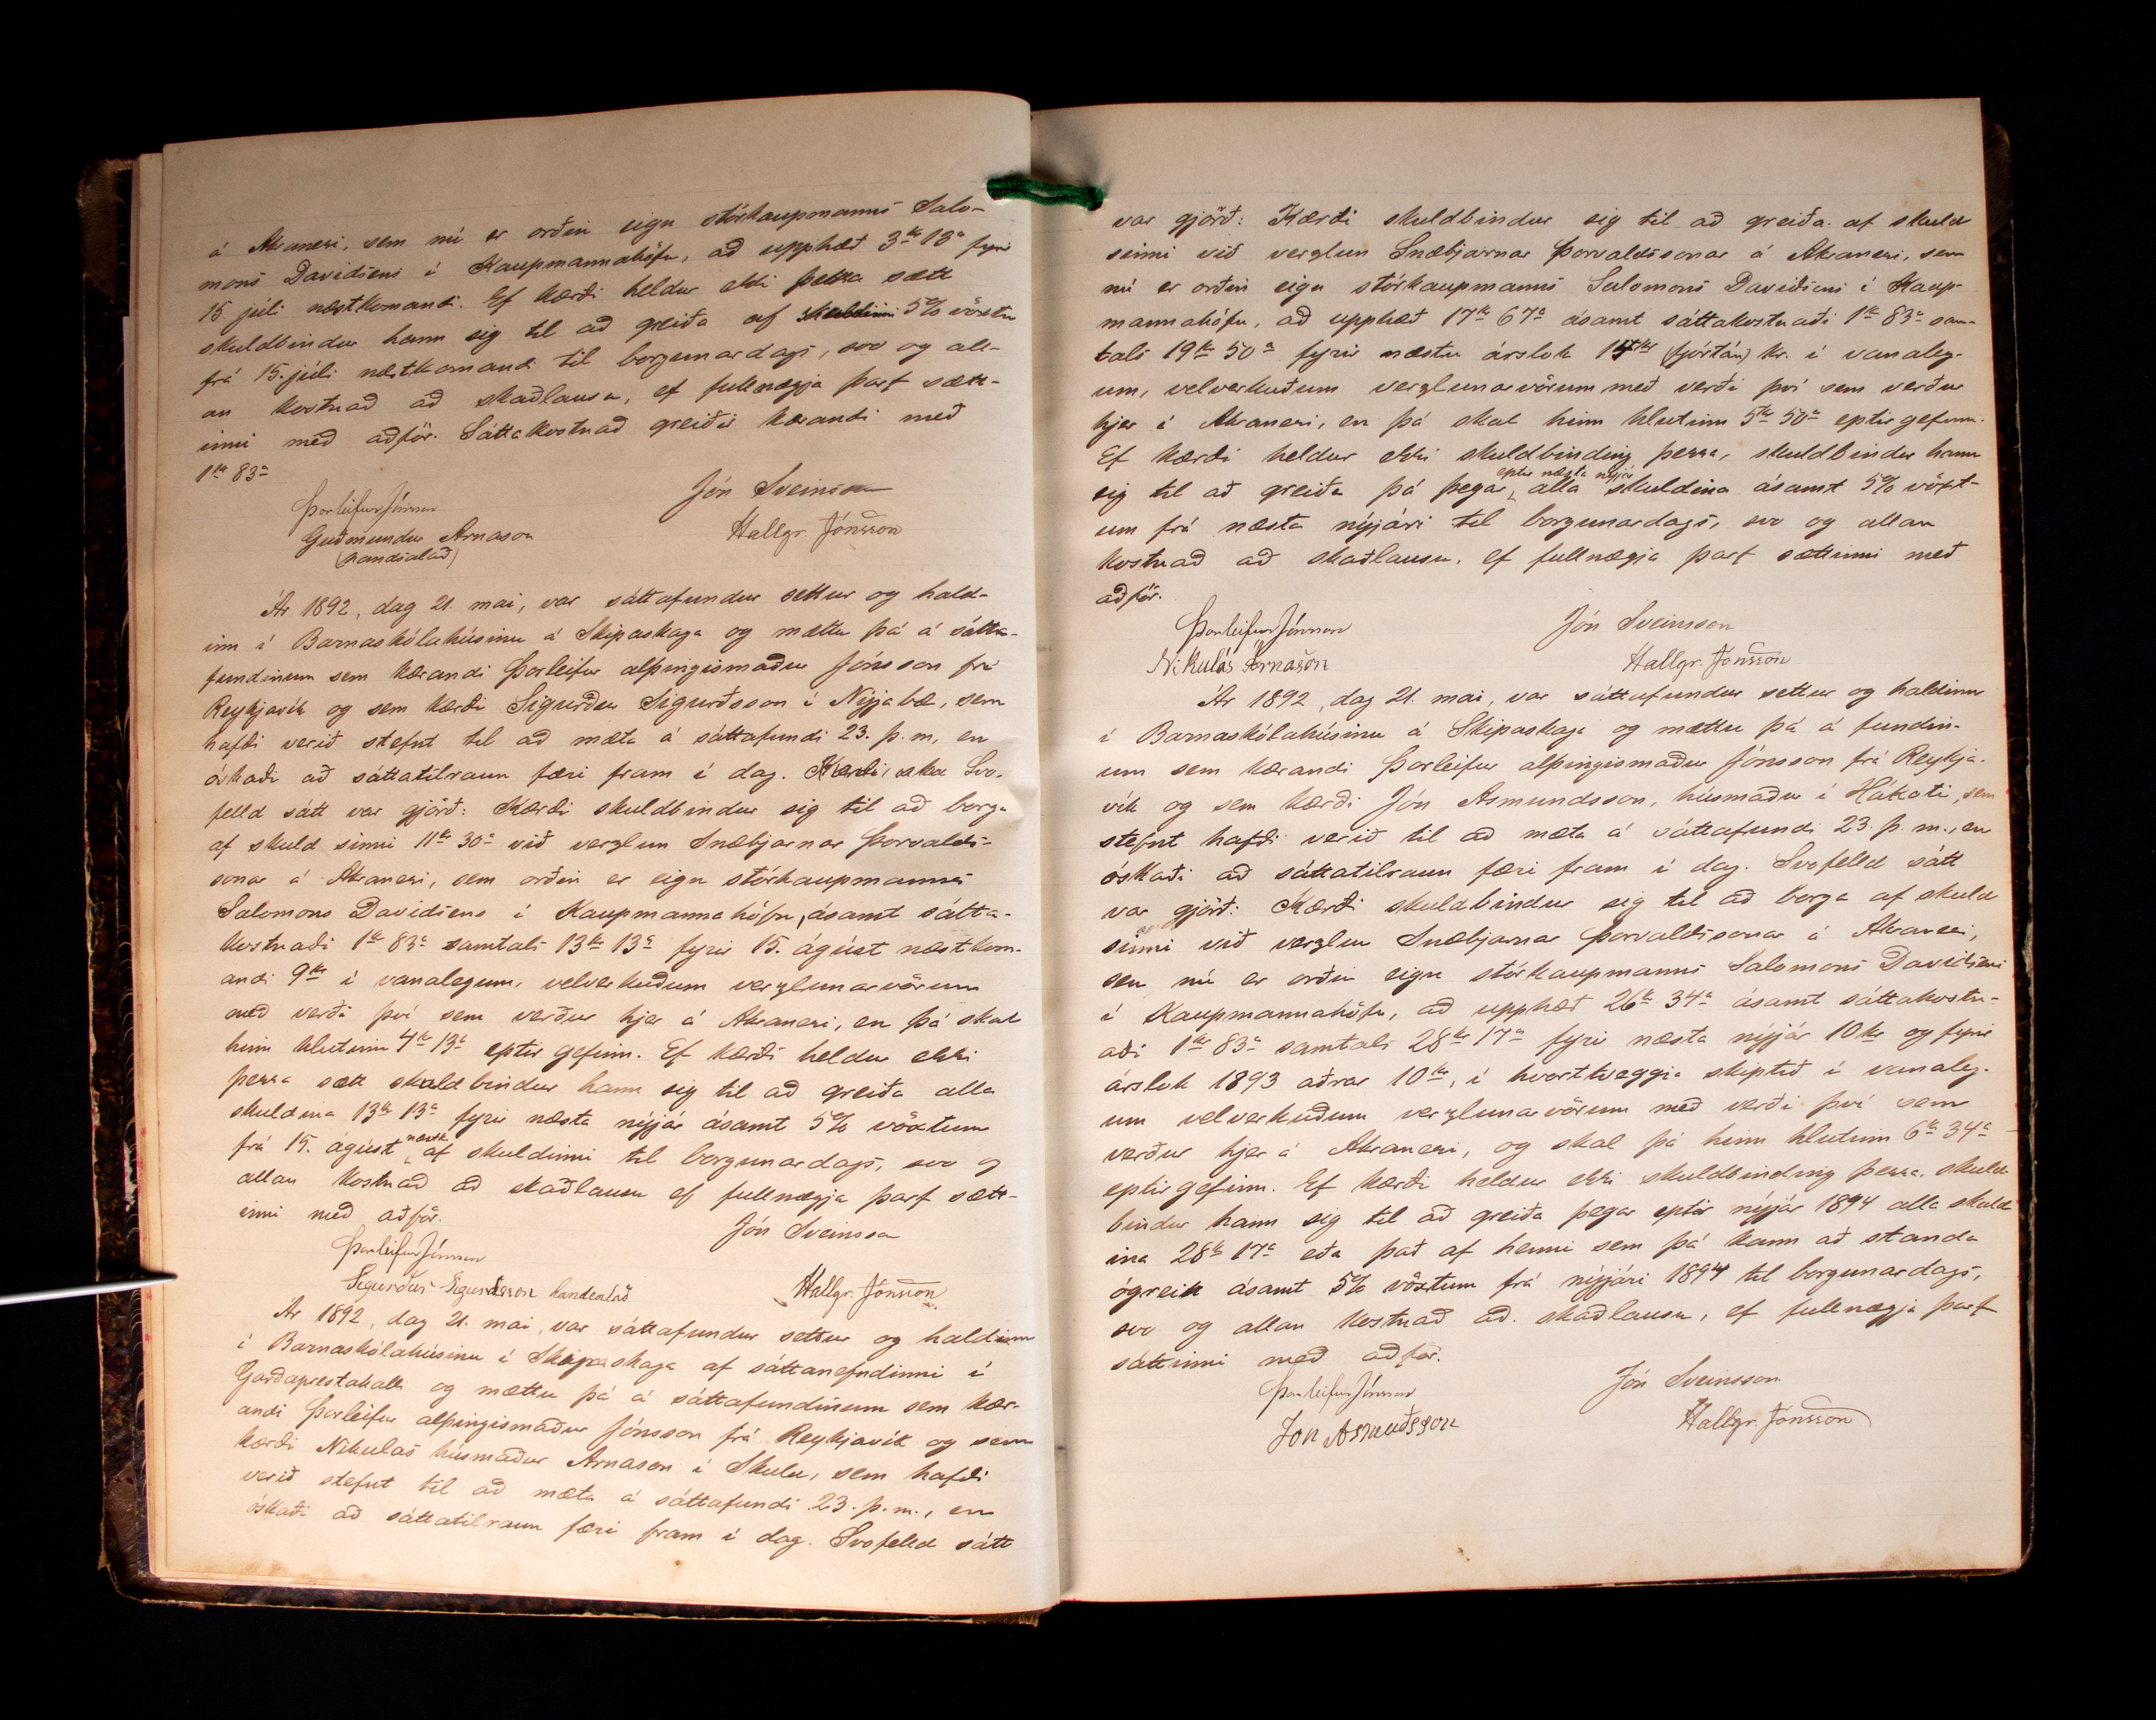 á Akranesi, sem nú er orðin eign stórkaupmanns Salo-
mons Davidsens í Kaupmannahöfn, að upphæð 3 kr 13 a fyrir
15 júli næstkomandi. Ef kærði heldur ekki þessa sætt
skuldbindur hann sig til að greiða af skuldinni 5% vöxtu
frá 15. júli næstkomandi til borgunardags, svo og all-
an kostnað að skaðlausu, ef fullnægja þarf sætt-
inni með aðför. Sáttakostnað greiðir kærandi með
1 kr 83 a
Jón Sveinsson
Þorleifur Jónsson
Guðmundur Arnason
Hallgr. Jónsson
(handsalað)
Ár 1892, dag 21. mai, var sáttafundur settur og hald-
inn í Barnaskólahúsinu á Skipaskaga og mættu þá á sátta-
fundinum sem kærandi Þorleifur alþingismaður Jónsson frá
Reykjavík og sem kærði Sigurður Sigurðsson í Nýjabæ, sem
hafði verið stefnt til að mæta á sáttafundi 23. þ. m, en
óskaði að sáttatilraun færi fram í dag. Svo-
felld sátt var gjörð: Kærði skuldbindur sig til að borga
af skuld sinni 11 kr 30 a við verzlun Snæbjarnar Þorvalds-
sonar á Akranesi, sem orðin er eign stórkaupmanns
Salomons Davidsens í Kaupmannahöfn, ásamt sátta-
kostnaði 1 kr 83 a samtals 13 kr 13 a fyrir 15. ágúst næstkom-
andi 9 kr í vanalegum, velverkuðum verzlunarvörum
með verði því sem verður hjer á Akranesi, en þá skal
hinn hlutinn 4 kr 13 a eptir gefinn. Ef kærði heldur ekki
þessa sætt skuldbindur hann sig til að greiða alla
skuldina 13 kr 13 a fyrir næsta nýjár ásamt 5% vöxtum
frá 15. ágúst næstk. af skuldinni til borgunardags, svo og
allan kostnað að skaðlausu ef fullnægja þarf sætt-
inni með aðför.
Jón Sveinsson
Þorleifur Jónsson
Sigurður Sigurdsson handsalað
Hallgr. Jónsson
Ár 1892, dag 21. mai, var sáttafundur settur og haldinn
í Barnaskólahúsinu í Skipaskaga af sáttanefndinni í
Garðaprestakalli og mættu þá á sáttafundinum sem kær-
andi Þorleifur alþingismaður Jónsson frá Reykjavík og sem
kærði Nikulás húsmaður Arnason í Skuld, sem hafði
verið stefnt til að mæta á sáttafundi 23. þ. m., en
óskaði að sáttatilraun færi fram í dag. Svofelld sátt
var gjörð: Kærði skuldbindur sig til að greiða af skuld
sinni við verzlun Snæbjarnar Þorvaldssonar á Akranesi, sem
nú er orðin eign stórkaupmanns Salomons Daviðsens í Kaup-
mannahöfn, að upphæð 17 kr 67 a ásamt sáttakostnaði 1 kr 83 a sam-
tals 19 kr 50 a fyrir næstu árslok 14 kr (fjórtán) kr. í vanaleg-
um, velverkuðum verzlunarvörum með verði því sem verður
hjer á Akranesi, en þá skal hinn hlutinn 5 kr 50 a eptir gefinn.
Ef kærði heldur ekki skuldbinding þessa, skuldbindur hann
sig til að greiða þá þegar eptir næsta nýjár alla skuldina ásamt 5% vöxt-
um frá næsta nýjári til borgunardags, svo og allan
kostnað að skaðlausu, ef fullnægja þarf sættinni með
aðför.
Þorleifur Jónsson
Jón Sveinsson
Nikulás Árnason
Hallgr. Jónsson
Ár 1892, dag 21. mai, var sáttafundur settur og haldinn
í Barnaskólahúsinu á Skipaskaga og mættu þá á fundin-
um sem kærandi Þorleifur alþingismaður Jónsson frá Reykja-
vík og sem kærði Jón Asmundsson, húsmaður í Hákoti, sem
stefnt hafði verið til að mæta á sáttafundi 23. þ. m., en
óskaði að sáttatilraun færi fram í dag. Svofelld sátt
var gjörð: Kærði skuldbindur sig til að borga af skuld
sinni við verzlun Snæbjarnar Þorvaldssonar á Akranesi,
sem nú er orðin eign stórkaupmanns Salomons Davidsens
í Kaupmannahöfn, að upphæð 26 kr 34 a ásamt sáttakostn-
aði 1 kr 83 a samtals 28 kr 17 a fyrir næsta nýjár 10 kr og fyrir
árslok 1893 aðrar 10 kr, í hvorttveggja skiptið í vanaleg-
um velverkuðum verzlunarvörum með verði því sem
verður hjer á Akranesi, og skal þá hinn hlutinn 6 kr 34 a
eptirgefinn. Ef kærði heldur ekki skuldbinding þessa, skuld-
bindur hann sig til að greiða þegar eptir nýjár 1894 alla skuld
ina 28 kr 17 a eða það af henni sem þá kann að standa
ógreitt ásamt 5% vöxtum frá nýjári 1894 til borgunardags,
svo og allan kostnað að skaðlausu, ef fullnægja þarf
sáttinni með aðför.
Þorleifur Jónsson
Jón Sveinsson
Jon Asmuðsson
Hallgr. Jónsson